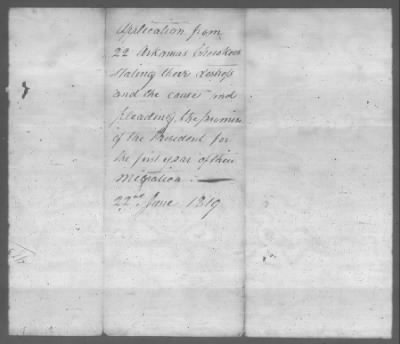 Application from
22 Arkansas Cherokees
stating their Distress
and the cause and
pleading, the promise
of the President for
the first year of their
Migration.
22nd June 1819